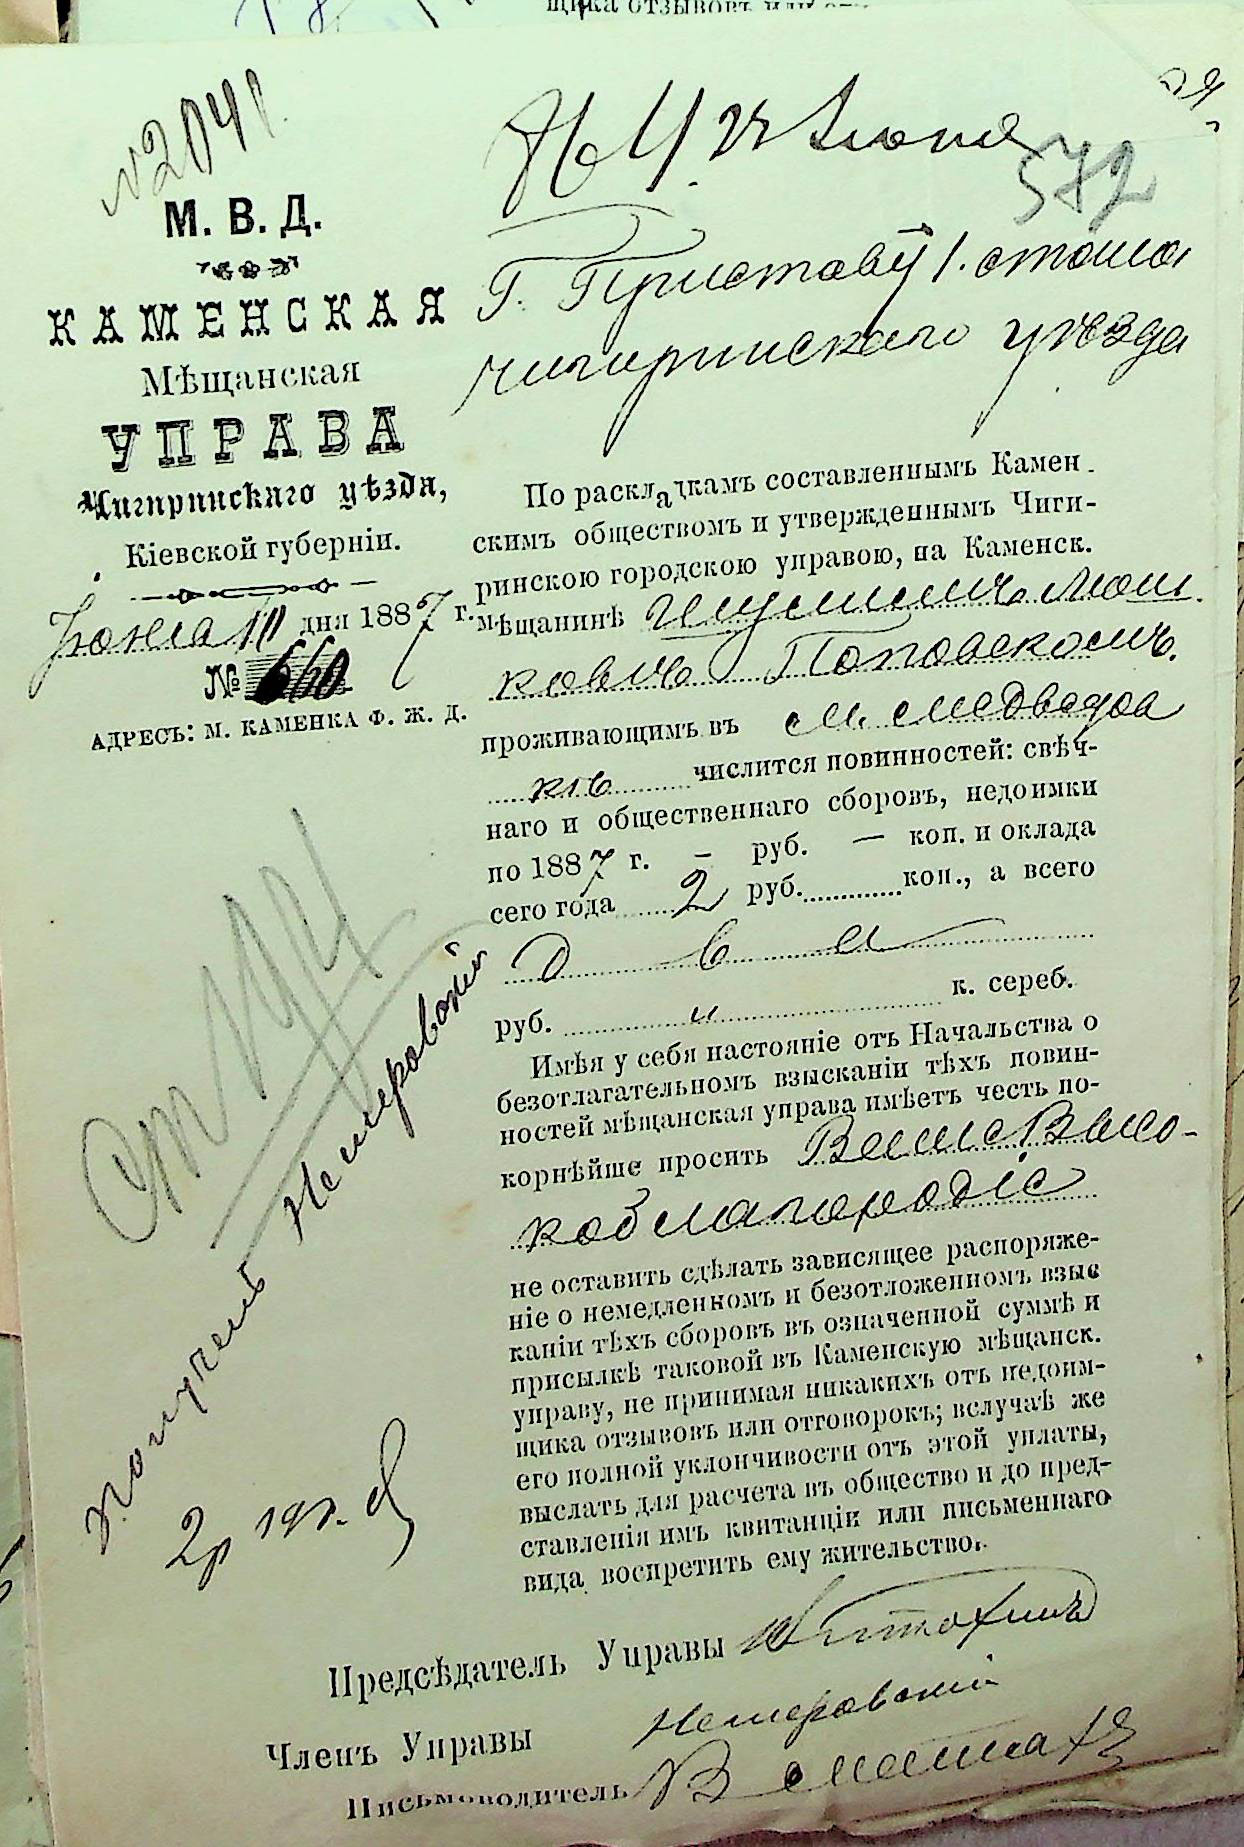 щика отзывовъ или
№ 2041.
24 Іюня
572
М. В. Д.
КАМЕНСКАЯ
Мѣщанская
УПРАВА
Чигиринскаго уѣзда,
Кіевской губерніи.
Іюня 10 дня 1887 г.
№ 660
АДРЕСЪ: М. КАМЕНКА Ф. Ж. Д.
Г. Приставу 1. стана
Чигиринскаго уѣзда
По раскладкамъ составленнымъ Камен-
скимъ обществомъ и утвержденнымъ Чиги-
ринскою городскою управою, на Каменск.
мѣщанинѣ Мош.
ковичъ Поповскомъ.
проживающимъ въ м. Медведов
кѣ числится повинностей: свѣч-
наго и общественнаго сборовъ, недоимки
по 1887 г. – руб. — коп. и оклада
сего года 2 руб. коп., а всего
Два
руб. и к. сереб.
Имѣя у себя настояніе отъ Начальства о
безотлагательномъ взысканіи тѣхъ повин-
ностей мѣщанская управа имѣетъ честь по-
корнѣйше просить Ваше Высо-
коблагородіе
не оставить сдѣлать зависящее распоряже-
ніе о немедленномъ и безотложенномъ взыс
каніи тѣхъ сборовъ въ означенной суммѣ и
присылкѣ таковой въ Каменскую мѣщанск.
управу, не принимая никакихъ отъ недоим-
щика отзывовъ или отговорокъ; вслучаѣ же
его полной уклончивости отъ этой уплаты,
выслать для расчета въ общество и до пред-
ставленія имъ квитанціи или письменнаго
вида воспретить ему жительство.
Предсѣдатель Управы
Членъ Управы Немеровскій
Письмоводитель
Немеровскій
2р